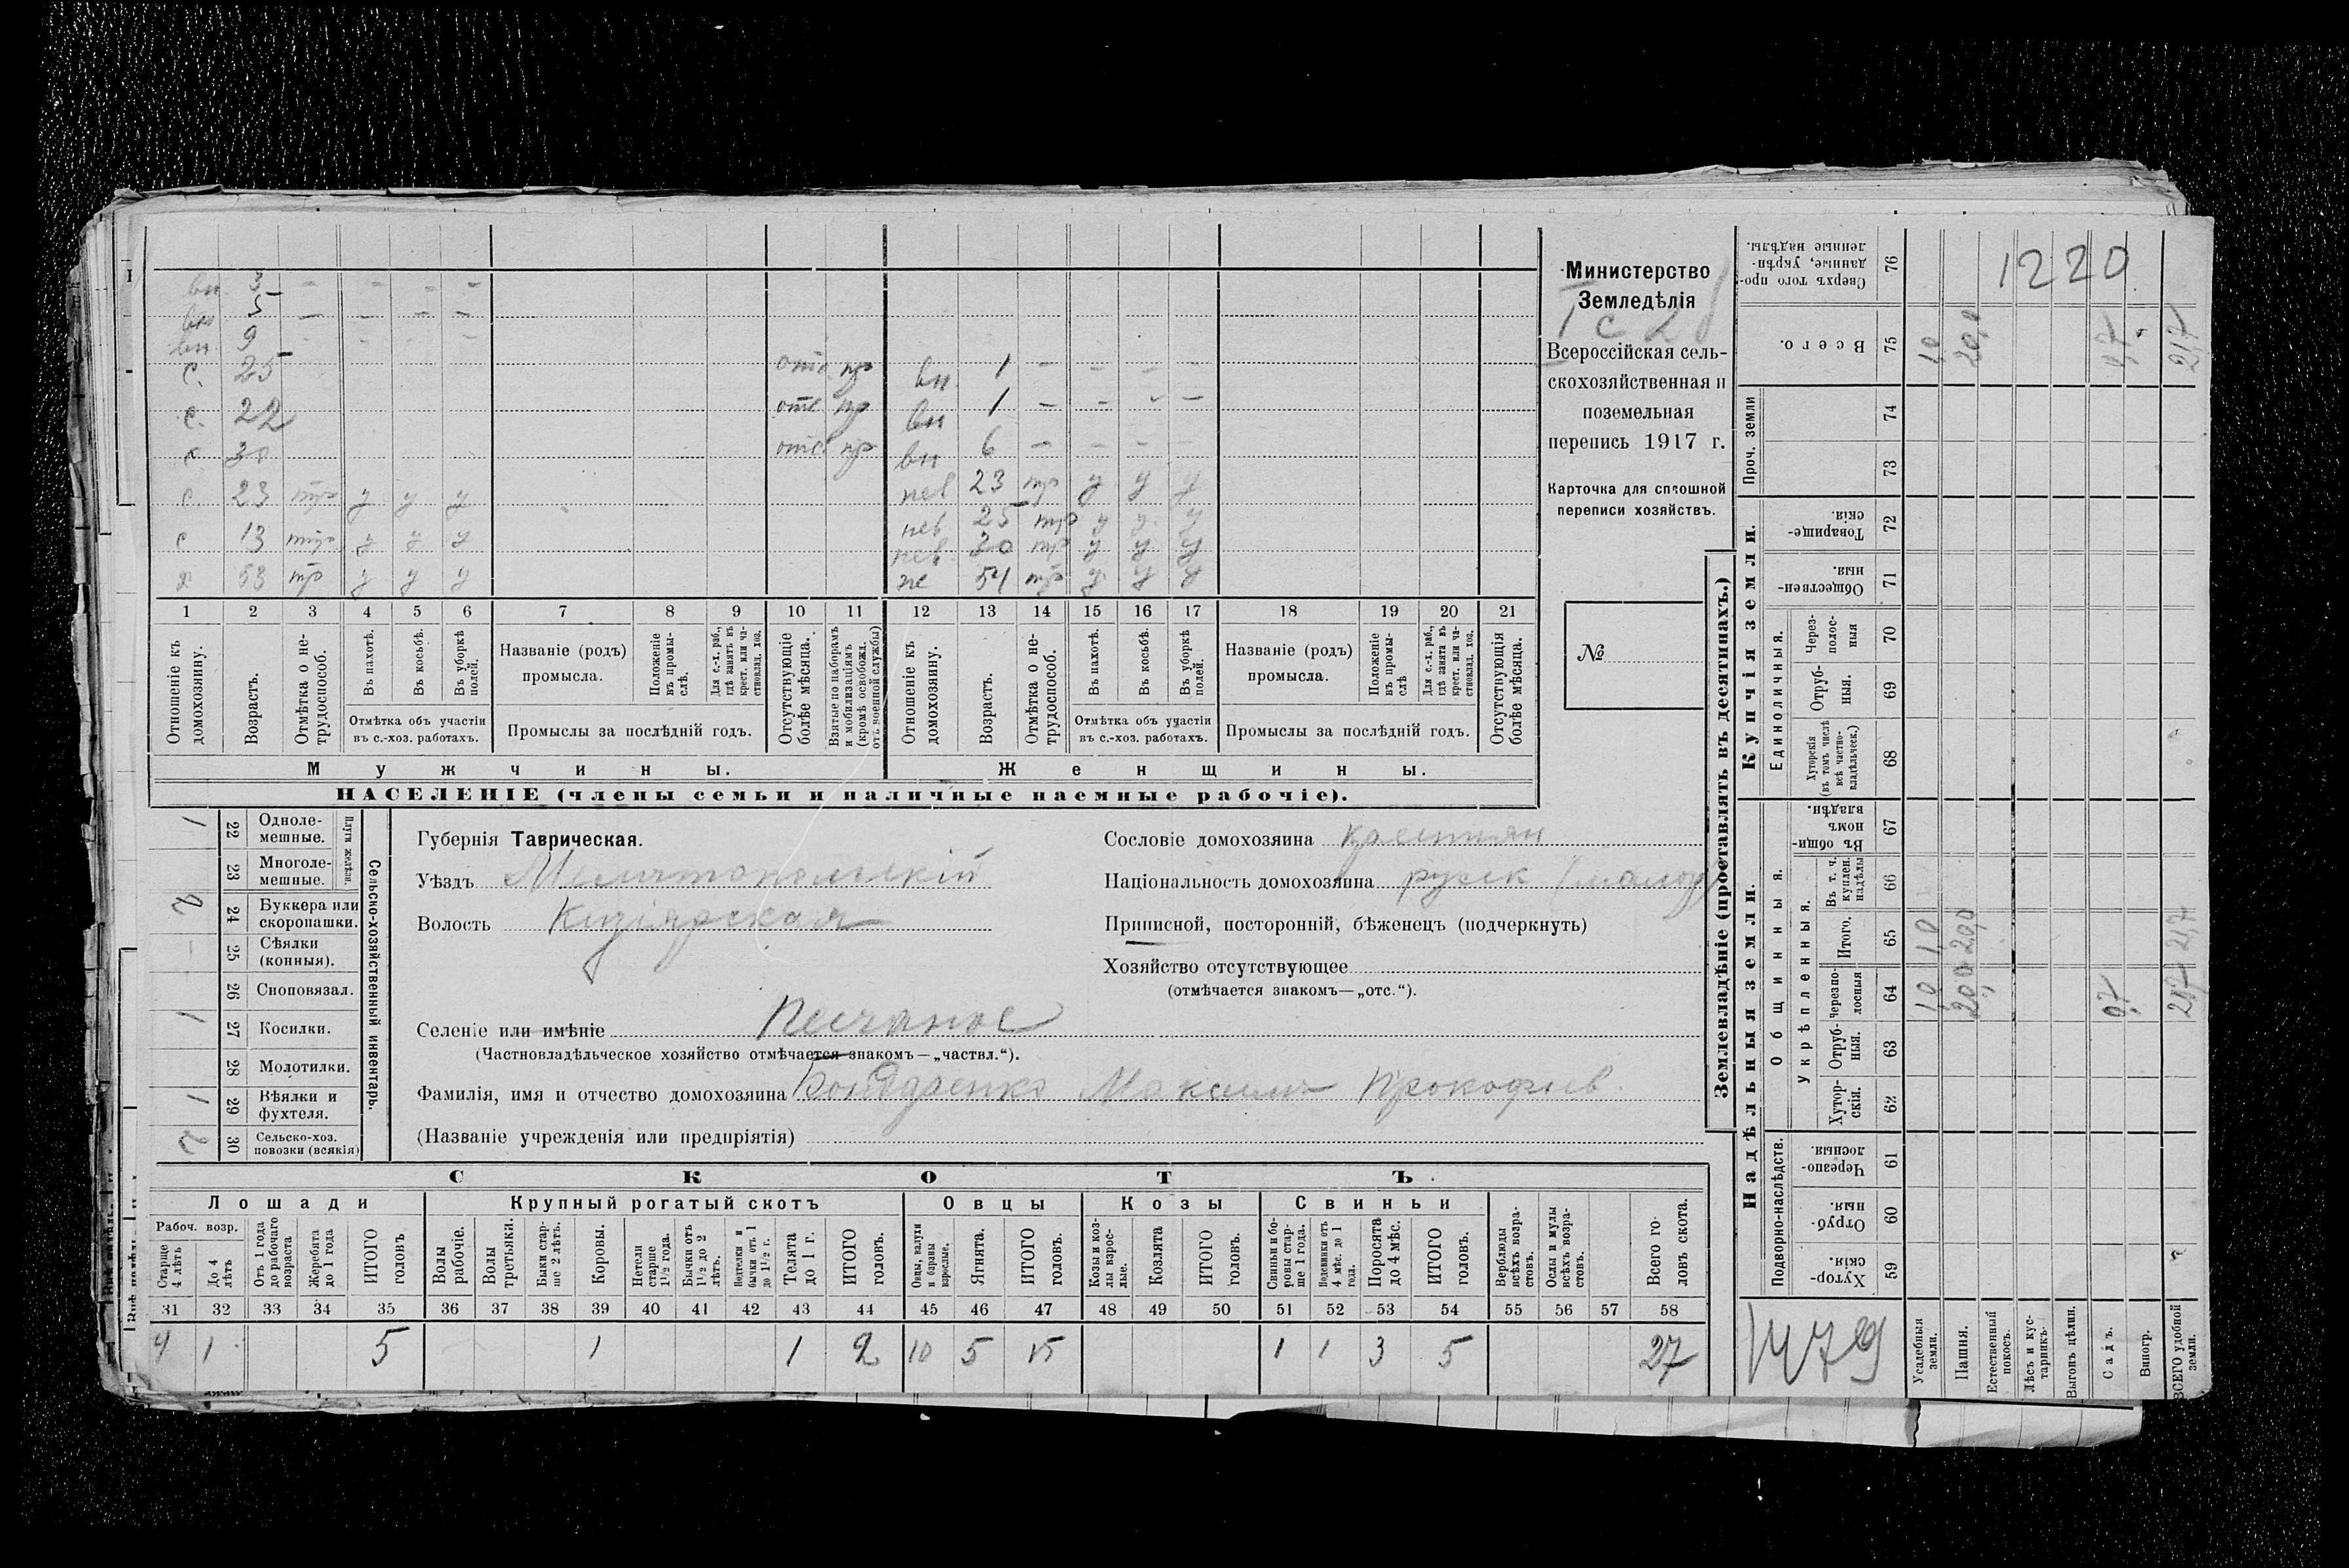 вн 3 - - - -
вн 5 - - - -
вн 9 - - - -
с. 25 отс пр вн 1 - - - -
с. 22 отс пр вн 1 - - - -
с 30 отс пр вн 6 - - - -
с. 23 тр у у у нев 23 тр у у у
нев 25 тр у у у
с 13 тр у у у нев 30 тр у у у
х 53 тр у у у же 54 тр у у у
1 2 3 4 5 6 7 8 9 10 11 12 13 14 15 16 17 18 19 20 21
Отношеніе къ домохозяину.
Возрастъ.
Отмѣтка о не-
трудоспособ.
Въ пахотѣ.
Въ косьбѣ.
Въ уборкѣ полей.
Отмѣтка объ участіи
въ с.-хоз. работахъ.
Названіе (родъ)
промысла.
Положеніе
въ промы-
слѣ.
Для с.-х. раб.,
гдѣ занятъ въ
крест. или ча-
стновлад. хоз.
Промыслы за послѣдній годъ.
Отсутствующіе
болѣе мѣсяца.
Взятые по наборамъ
и мобилизаціямъ
(кромѣ освобожд.
отъ военной службы)
Отношеніе къ
домохозяину.
Возрастъ.
Отмѣтка о не-
трудоспособ.
Въ пахотѣ.
Въ косьбѣ.
Въ уборкѣ
полей.
Отмѣтка объ участіи
въ с.-хоз. работахъ.
Названіе (родъ)
промысла.
Положеніе
въ промы-
слѣ
Для с.-х. раб.,
гдѣ занята въ
крест. или ча-
стновлад. хоз.
Промыслы за послѣдній годъ.
Отсутствующія
болѣе мѣсяца.
Мужчины.
Женщины.
НАСЕЛЕНІЕ (члены семьи и наличные наемные рабочіе).
Министерство
Земледѣлія
Всероссійская сель-
скохозяйственная и
поземельная
перепись 1917 г.
Карточка для сплошной
переписи хозяйствъ.
№
1 22 Одноле-
мешные.
23 Многоле-
мешные.
Плуги желѣзн.
2 24 Буккера или
скоропашки.
- 25 Сѣялки
(конныя).
26 Сноповязал.
1 27 Косилки.
28 Молотилки.
1 29 Вѣялки и
фухтеля.
2 30 Сельско-хоз.
повозки (всякія)
Сельско-хозяйственный инвентарь.
Губернія Таврическая.
Уѣздъ Мелитопольскій
Волость Кизіярская
Селеніе или имѣніе Песчаное
(Частновладѣльческое хозяйство отмѣчается знакомъ—„частвл.“).
Фамилія, имя и отчество домохозяина Бондаренко Максимъ Прокофьев.
(Названіе учрежденія или предпріятія)
Сословіе домохозяина крестьян
Національность домохозяина русск (малор)
Приписной, посторонній, бѣженецъ (подчеркнуть)
Хозяйство отсутствующее
(отмѣчается знакомъ—„отс.“).
СКОТЪ
Лошади
Крупный рогатый скотъ
Овцы
Козы
Свиньи
Рабоч. возр.
Старше
4 лѣтъ
До 4
лѣтъ
Отъ 1 года
до рабочаго
возраста
Жеребята
до 1 года
ИТОГО
головъ
Волы
рабочіе.
Волы
третьяки.
Быки стар-
ше 2 лѣтъ.
Коровы.
Нетели
старше
1½ года.
Бычки отъ
1½ до 2
лѣтъ.
Подтелки и
бычки отъ 1
до 1½ г.
Телята
до 1 г.
ИТОГО
головъ.
Овцы, валухи
и бараны
взрослые.
Ягнята.
ИТОГО
головъ.
Козы и коз-
лы взрос-
лые.
Козлята
ИТОГО
головъ.
Свиньи и бо-
ровы стар-
ше 1 года.
Подсвинки отъ
4 мѣс. до 1
года.
Поросята
до 4 мѣс.
ИТОГО
головъ.
Верблюды
всѣхъ возра-
стовъ.
Ослы и мулы
всѣхъ возра-
стовъ.
Всего го-
ловъ скота.
31 32 33 34 35 36 37 38 39 40 41 42 43 44 45 46 47 48 49 50 51 52 53 54 55 56 57 58
4 1 5 1 1 2 10 5 15 1 1 3 5 27
Землевладѣніе (проставлять въ десятинахъ.)
Купчія земли.
Надѣльныя земли.
Сверхъ того про-
данные, укрѣп-
ленные надѣлы.
76
1220
Всего.
75 1,0 20,0 0,7 21,7
Проч. земли
74
73
Товарище-
скія.
72
Обществен-
ныя.
71
Единоличныя.
Через-
полос-
ныя
70
Отруб-
ныя.
69
Хуторскія
(въ томъ числѣ
всѣ частно-
владѣльческ.)
68
Общинныя.
Въ общин-
номъ
владѣн.
67
Укрѣпленныя.
Въ т. ч.
куплен.
надѣлы
66
Итого.
65 1,0 20,0 21,7
Черезпо-
лосныя
64 1,0 20,0 0,7 21,7
Отруб-
ныя.
63
Хутор-
скія.
62
Подворно-наслѣдств.
Черезпо-
лосныя.
61
Отруб-
ныя.
60
Хутор-
скія.
59
1479
Усадебныя
земли.
Пашня.
Естественный
покосъ.
Лѣсъ и кус-
тарникъ.
Выгонъ цѣлин.
Садъ.
Виногр.
ВСЕГО удобной
земли.